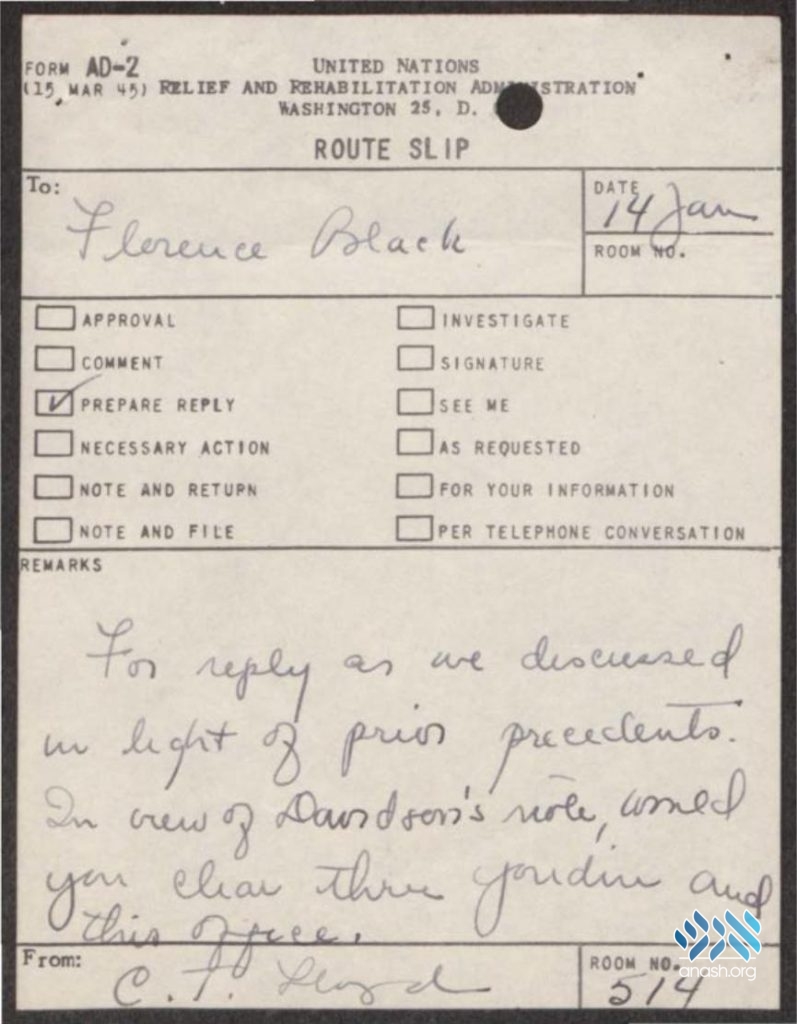 FORM AD-2
(15 MAR 45)
UNITED NATIONS
RELIEF AND REHABILITATION ADMINISTRATION
WASHINGTON 25, D.
ROUTE SLIP
To:
Florence Black
DATE
14 Jan
ROOM NO.
APPROVAL
COMMENT
PREPARE REPLY
NECESSARY ACTION
NOTE AND RETURN
NOTE AND FILE
INVESTIGATE
SIGNATURE
SEE ME
AS REQUESTED
FOR YOUR INFORMATION
PER TELEPHONE CONVERSATION
REMARKS
For reply as we discussed
in light of prior precedents.
In view of Davidson's note, would
you clear thru and
this office.
From:
C. Lloyd
ROOM NO.
514
אנש
anash.org